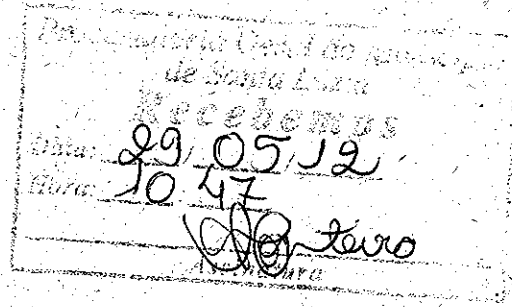 Procuradoria Geral do Município
de Santa Luzia
Recebemos
Data: 29/05/12
Hora: 10 47
Monteiro
Assinatura